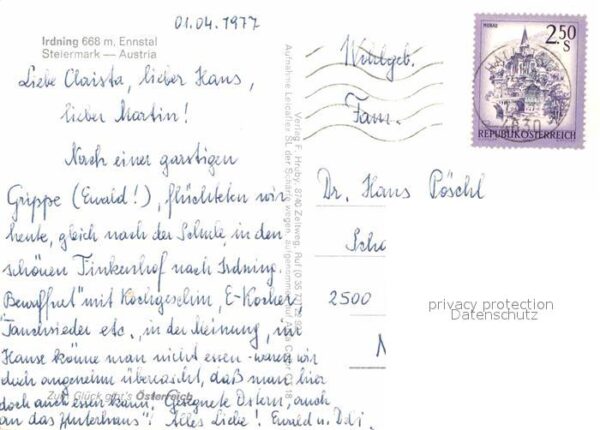 01.04.1977
Irdning 668 m, Ennstal
Steiermark — Austria
Liebe Christa, lieber Hans,
lieber Martin!
Nach einer garstigen
Grippe (Ewald!), flüchteten wir
heute, gleich nach der Schule in den
schönen Finkenhof nach Irdning.
"Bewaffnet" mit Kochgeschirr, E-Kocher,
Tauchsieder etc., in der Meinung, im
Hause könne man nicht essen - waren wir
doch angenehm überrascht, daß man hier
doch auch essen kann. Gesegnete Ostern, auch
an das "Hinterhaus"! Alles Liebe! Ewald u.
Zum Glück gibt's Österreich
Verlag F. Hruby, 8740 Zeltweg, Ruf (0 35 77)
Aufnahme Leicaflex SL der Schärfe wegen, aufgenommen auf Agfa
MURAU
2.50 S
REPUBLIK ÖSTERREICH
Wohlgeb.
Fam.
Dr. Hans Pöschl
2500
privacy protection
Datenschutz